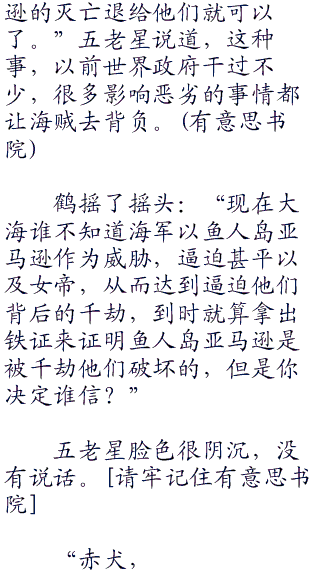 逊的灭亡退给他们就可以
了。”五老星说道，这种
事，以前世界政府干过不
少，很多影响恶劣的事情都
让海贼去背负。(有意思书
院)
鹤摇了摇头：“现在大
海谁不知道海军以鱼人岛亚
马逊作为威胁，逼迫甚平以
及女帝，从而达到逼迫他们
背后的千劫，到时就算拿出
铁证来证明鱼人岛亚马逊是
被千劫他们破坏的，但是你
决定谁信？”
五老星脸色很阴沉，没
有说话。[请牢记住有意思书
院]
“赤犬，